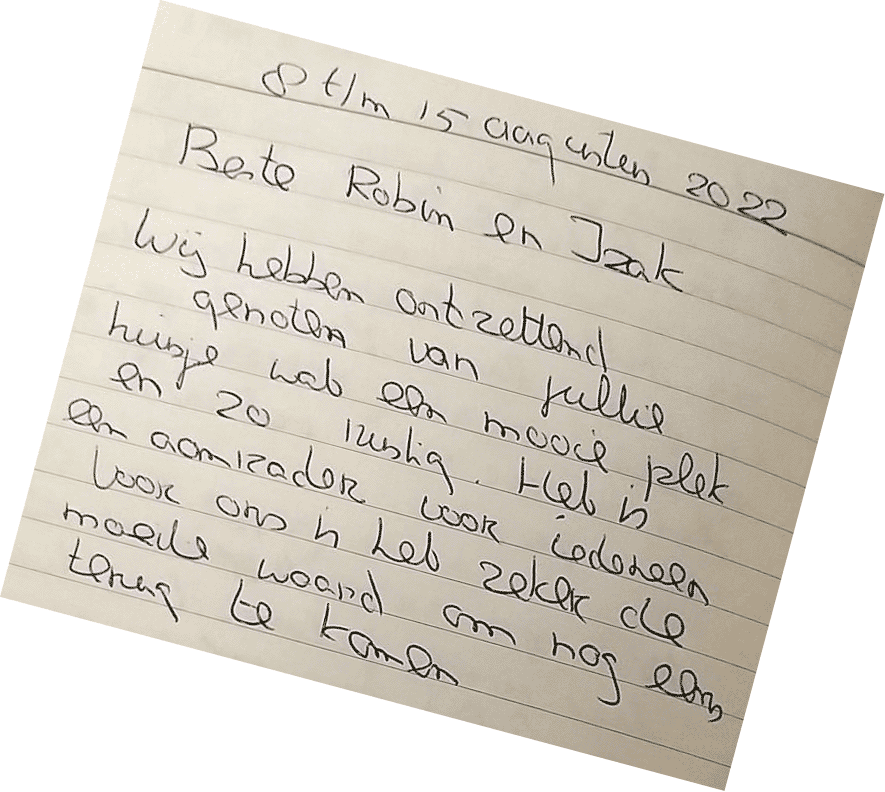 8 t/m 15 augusten 2022
Beste Robin en Izak
Wij hebben ontzettend
genoten van jullie
huisje wat een mooie plek
en zo rustig. Het is
een aanrader voor iedereen
voor ons is het zeker de
moeite waard om nog eens
terug te komen